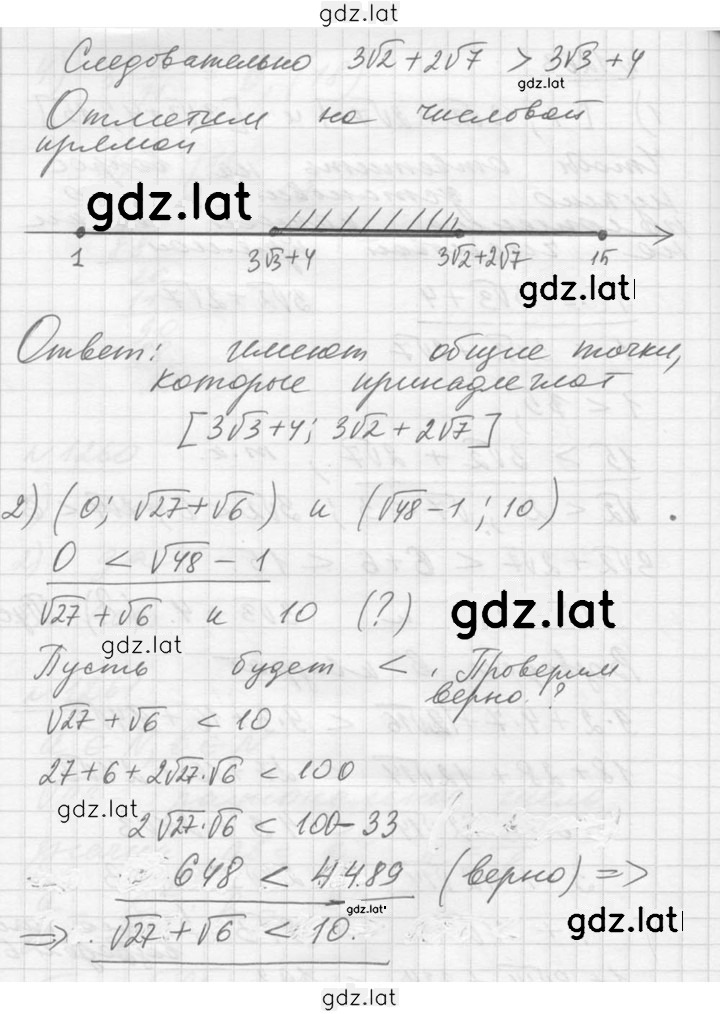 gdz.lat
Следовательно 3√2+2√7 > 3√3+4
gdz.lat
Отметим на числовой
прямой
gdz.lat
1 3√3+4 3√2+2√7 15
gdz.lat
Ответ: имеют общие точки,
которые принадлежат
[3√3+4; 3√2+2√7]
2) (0; √27+√6) и (√48-1; 10)
0 < √48-1
√27+√6 и 10 (?)
gdz.lat
gdz.lat
Пусть будет <. Проверим
верно?
√27+√6 < 10
27+6+2√27·√6 < 100
gdz.lat
2√27·√6 < 100-33
648 < 4489 (верно) =>
gdz.lat
=> √27+√6 < 10.
gdz.lat
gdz.lat